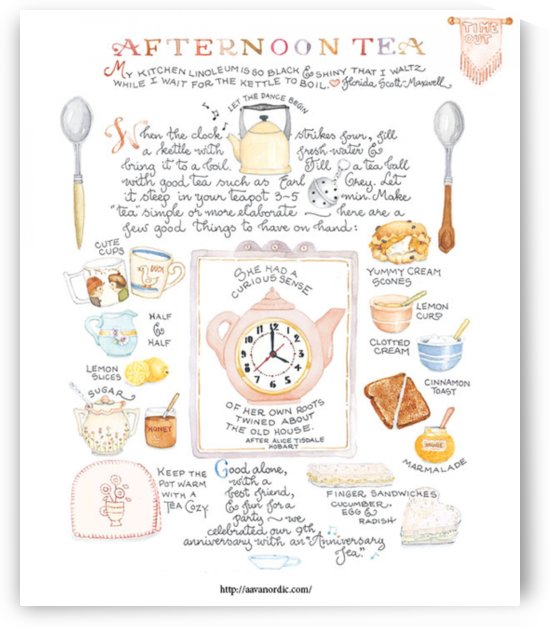 AFTERNOON TEA
TIME
OUT
My KITCHEN LINOLEUM IS SO BLACK & SHINY THAT I WALTZ
WHILE I WAIT FOR THE KETTLE TO BOIL. Florida Scott-Maxwell
LET THE DANCE BEGIN
When the clock strikes four, fill
a kettle with fresh water &
bring it to a boil. Fill a tea ball
with good tea such as Earl Grey. Let
it steep in your teapot 3~5 min. Make
"tea" simple or more elaborate ~ here are a
few good things to have on hand:
CUTE
CUPS
HALF
&
HALF
LEMON
SLICES
SUGAR
HONEY
SHE HAD A
CURIOUS SENSE
12
1
2
3
4
5
6
7
8
9
10
11
OF HER OWN ROOTS
TWINED ABOUT
THE OLD HOUSE.
AFTER ALICE TISDALE
HOBART
YUMMY CREAM
SCONES
LEMON
CURD
CLOTTED
CREAM
CINNAMON
TOAST
MARMALADE
KEEP THE
POT WARM
WITH A
TEA COZY
Good alone,
with a
best friend,
& fun for a
party ~ we
celebrated our 9th
anniversary with an "Anniversary
Tea."
FINGER SANDWICHES
CUCUMBER,
EGG &
RADISH
http://aavanordic.com/